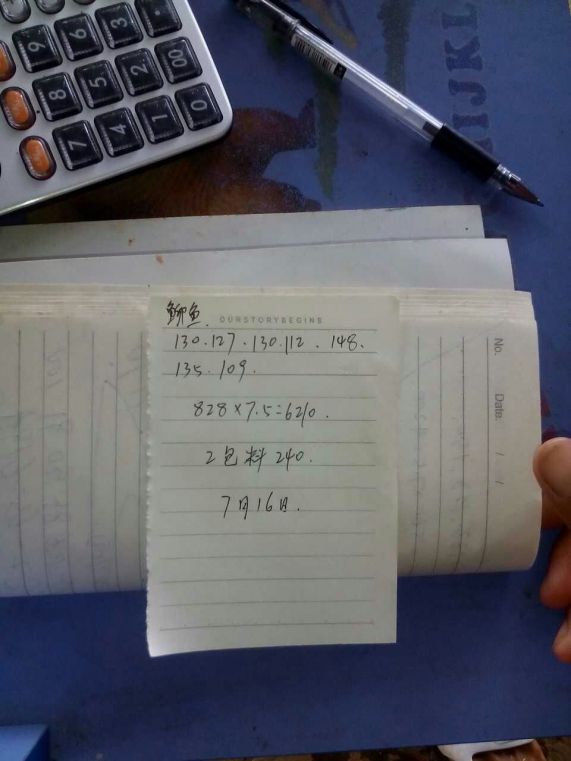 9 6 3 .
8 5 2 00
7 4 1 0
IJKL
鲫鱼.
OURSTORYBEGINS
130.127.130.112.148.
135.109.
828×7.5=6210.
2包料240.
7月16日.
No.
Date: / /